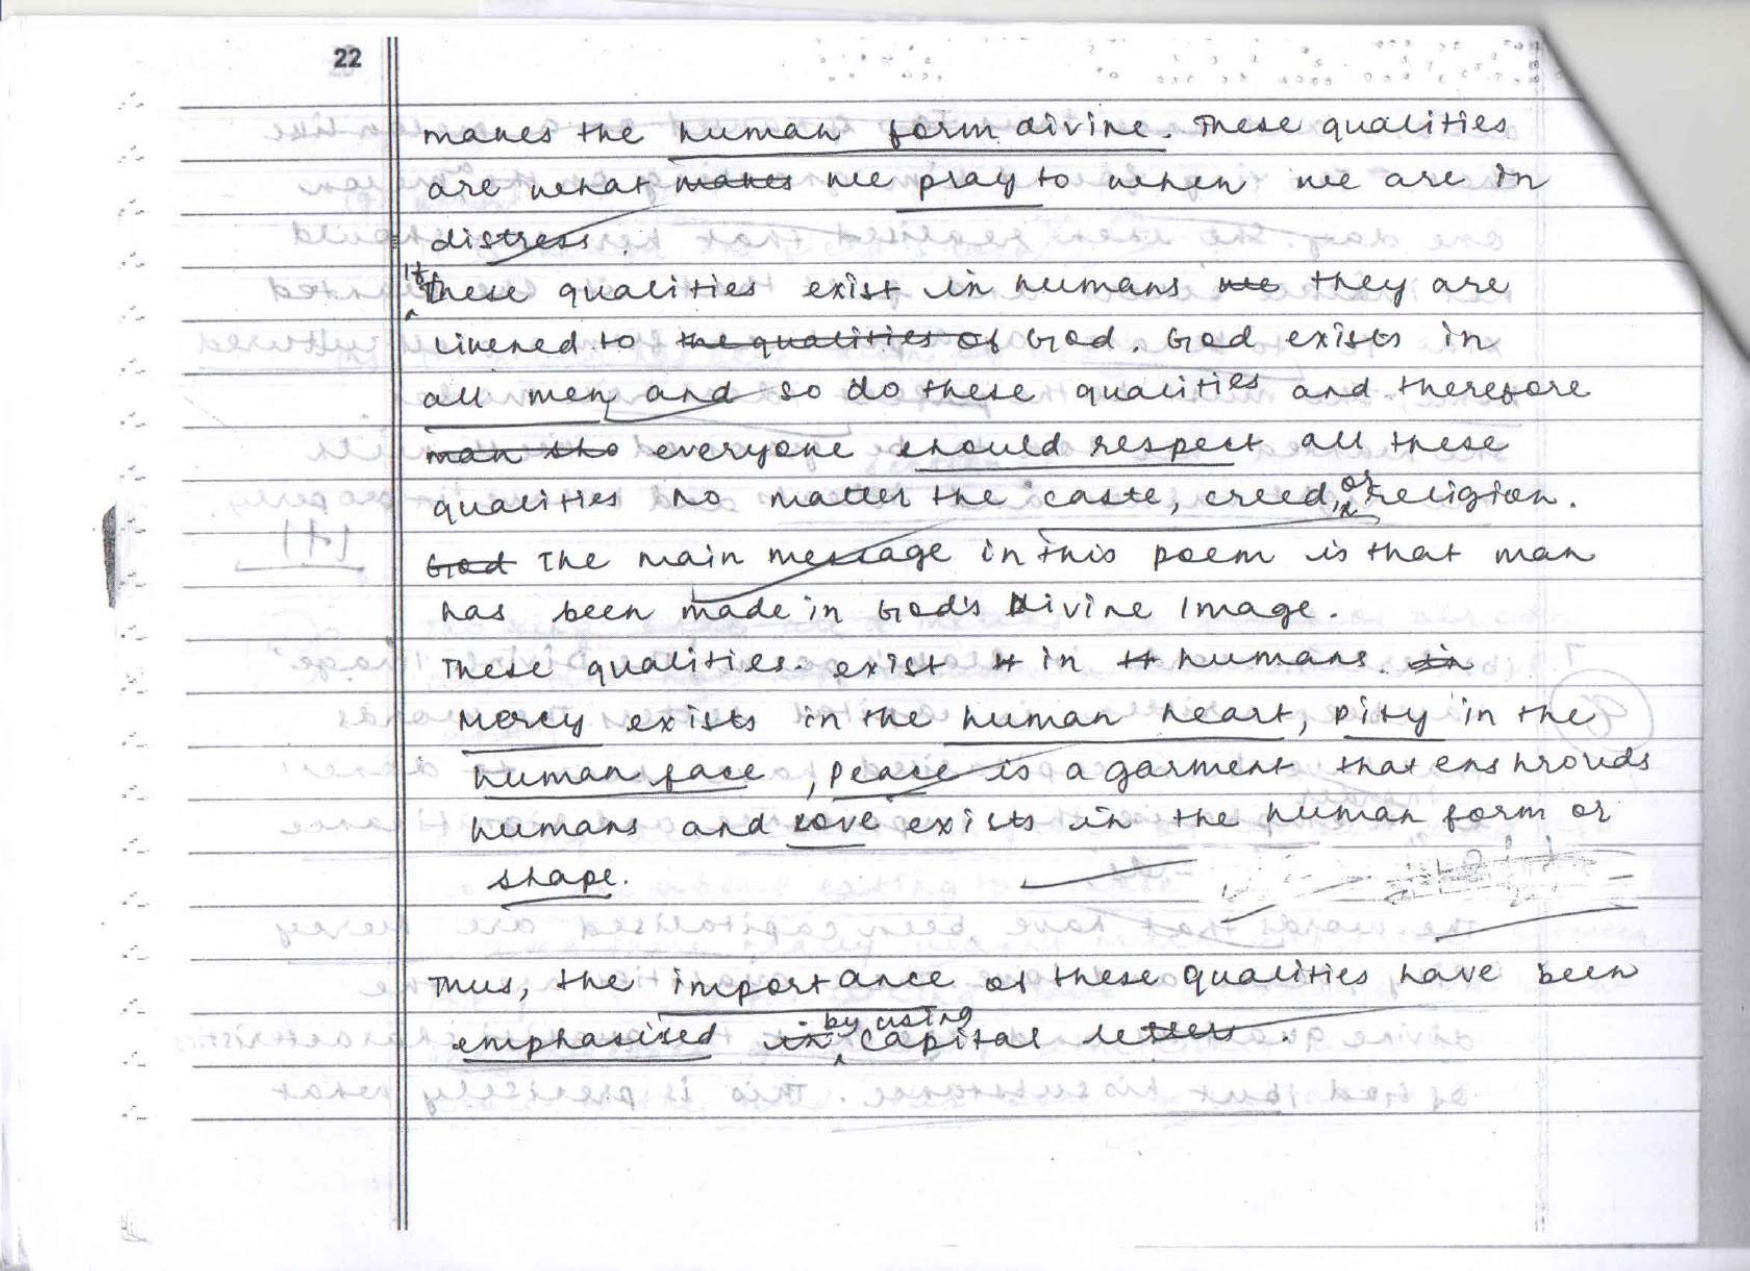 22
makes the human form divine. These qualities
are what makes we pray to when we are in
distress.
If these qualities exist in humans we they are
likened to the qualities of God. God exists in
all men and so do these qualities and therefore
man sho everyone should respect all these
qualities no matter the caste, creed, or religion.
God The main message in this poem is that man
has been made in God's Divine Image.
These qualities exist in humans. in
Mercy exists in the human heart, Pity in the
human face, Peace is a garment that enshrouds
humans and Love exists in the human form or
shape.
Thus, the importance of these qualities have been
emphasised in by using capital letters.